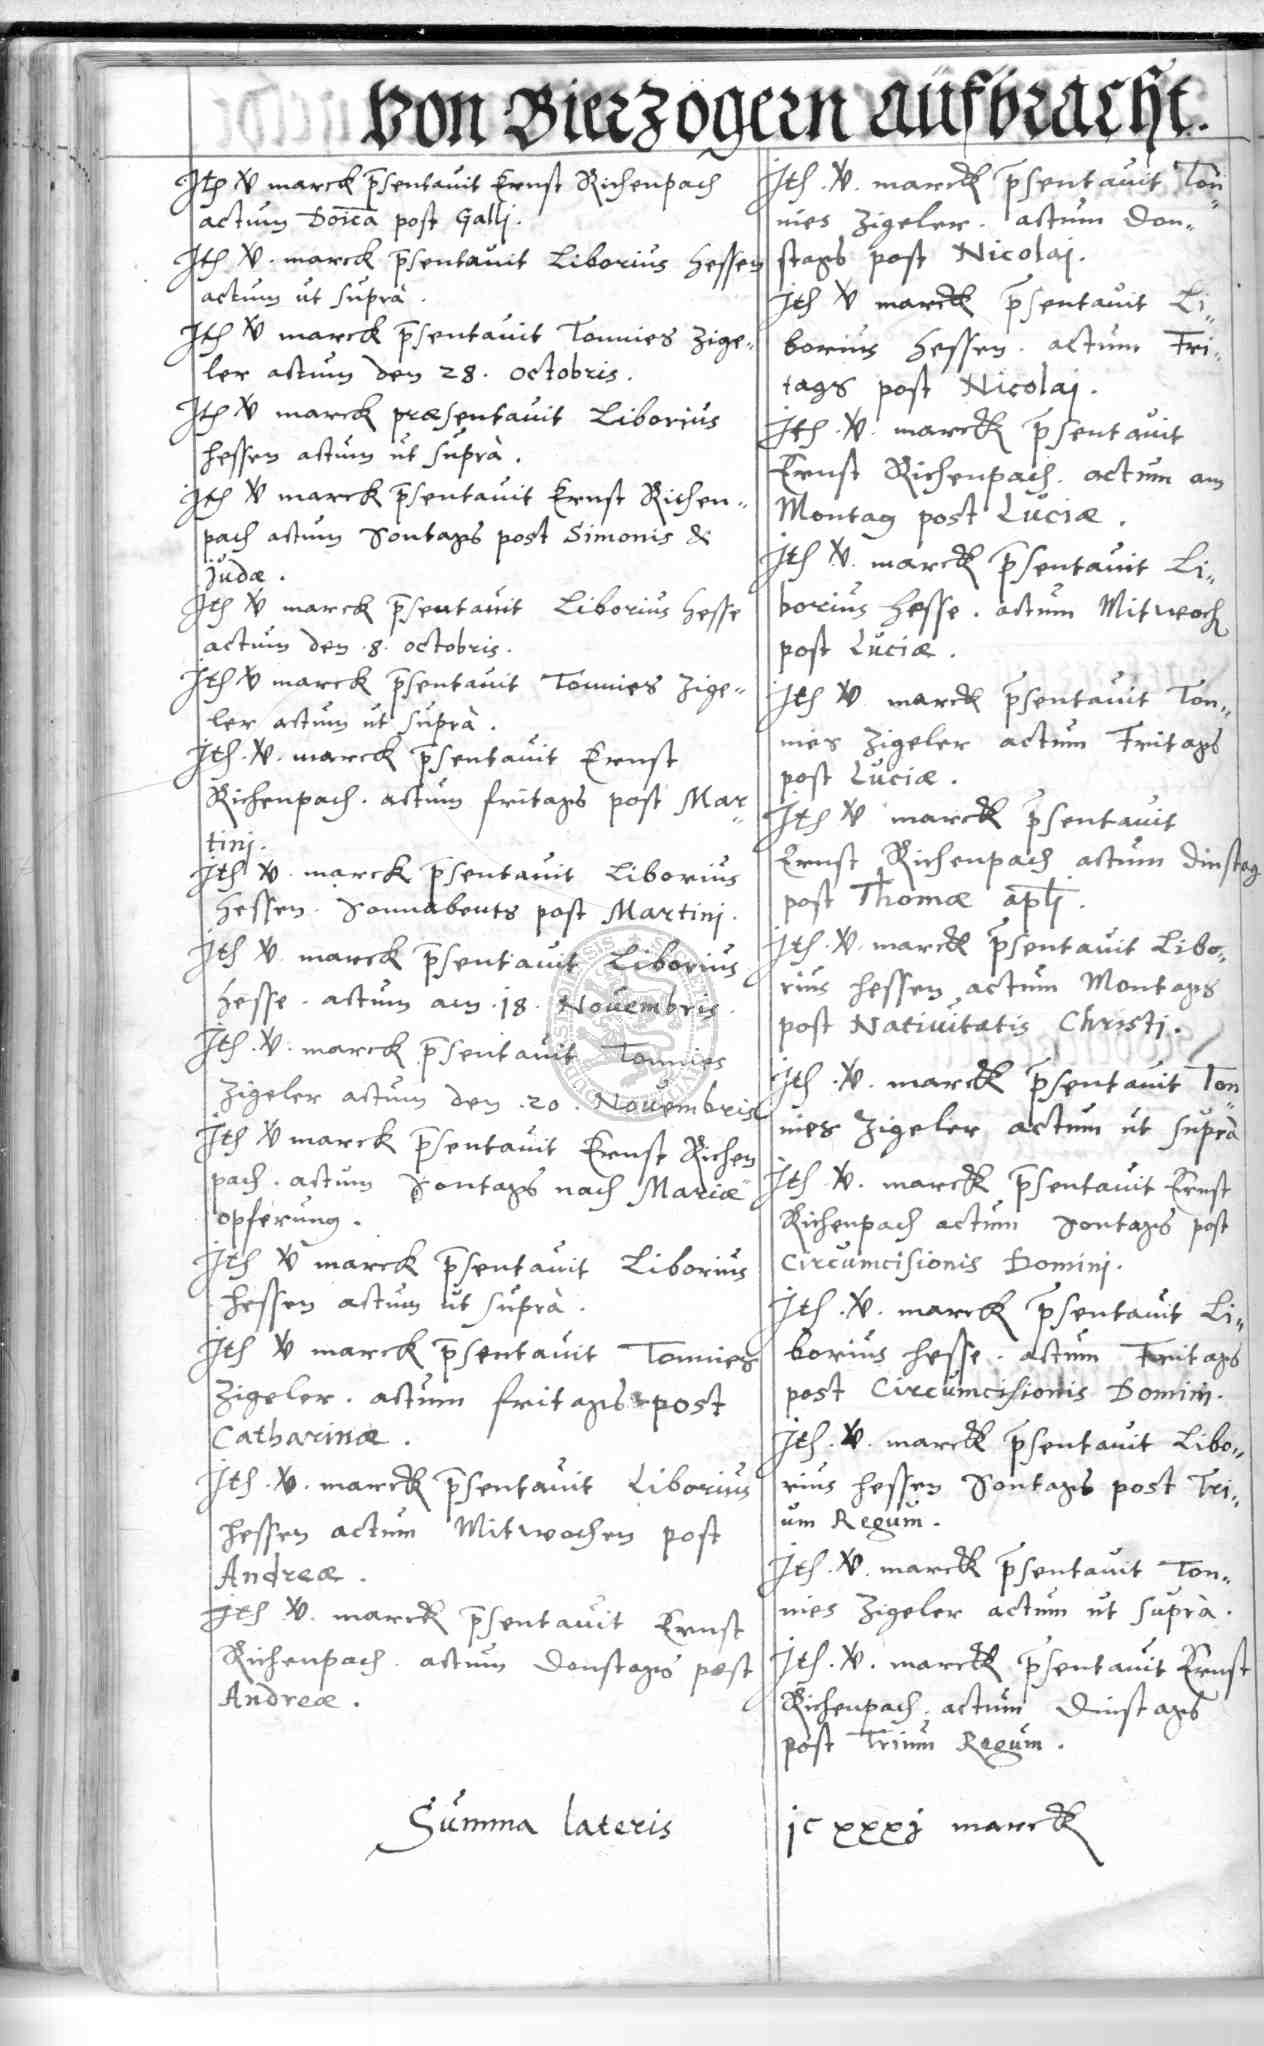 Von Bierzögern aufbracht.
Ith v marck p̄sentavit Ernst Richenpach
actum Doīca post Galli.
Ith v. marck p̄sentavit Liborius Hessen
actum ut suprà.
Ith v marck p̄sentavit Tonnies Zige„
ler actum den 28. Octobris.
Ith v marck præsentavit Liborius
Hessen actum ut suprà.
Ith v marck p̄sentavit Ernst Richen„
pach actum Sontags post Simonis &
Judæ.
Ith v marck p̄sentavit Liborius Hesse
actum den .8. octobris.
Ith v marck p̄sentavit Tonnies Zige„
ler actum ut suprà.
Ith. v. marck p̄sentavit Ernst
Richenpach. actum fritags post Mar„
tinj.
Ith v. marck p̄sentavit Liborius
Hessen. Sonnabents post Martinj.
Ith v. marck p̄sentavit Liborius
Hesse. actum am .18. Novembris.
Ith. v. marck p̄sentavit Tonnies
Zigeler actum den .20. Novembris
Ith v marck p̄sentavit Ernst Richen„
pach. actum Sontags nach Mariæ
opferung.
Ith v marck p̄sentavit Liborius
Hessen actum ut suprà.
Ith v marck p̄sentavit Tonnies
Zigeler. actum fritags post
Catharinæ.
Ith. v. marck p̄sentavit Liborius
Hessen actum Mitwochen post
Andreæ.
Ith v. marck p̄sentavit Ernst
Richenpach. actum Donstags post
Andreæ.
Ith. v. marck p̄sentavit Ton„
nies Zigeler. actum Don„
stags post Nicolaj.
Ith v marck p̄sentavit Li„
borius Hessen. actum Fri„
tags post Nicolaj.
Ith. v. marck p̄sentavit
Ernst Richenpach. actum am
Montag post Luciæ.
Ith v. marck p̄sentavit Li„
borius Hesse. actum Mitwoch
post Luciæ.
Ith v. marck p̄sentavit Ton„
nies Zigeler actum Fritags
post Luciæ.
Ith v marck p̄sentavit
Ernst Richenpach actum dinstag
post Thomæ apłi.
Ith. v. marck p̄sentavit Libo„
rius Hessen actum Montags
post Nativitatis Christi.
Ith. v. marck p̄sentavit Ton„
nies Zigeler actum ut suprà
Ith. v. marck p̄sentavit Ernst
Richenpach actum Sontags post
Circumcisionis Dominj.
Ith. v. marck p̄sentavit Li„
borius Hesse. actum Fritags
post Circumcisionis Domini.
Ith. v. marck p̄sentavit Libo„
rius Hessen Sontags post Tri„
um Regum.
Ith. v. marck p̄sentavit Ton„
nies Zigeler actum ut suprà.
Ith. v. marck p̄sentavit Ernst
Richenpach. actum Dinstags
post Trium Regum.
Summa lateris jc xxxj marck